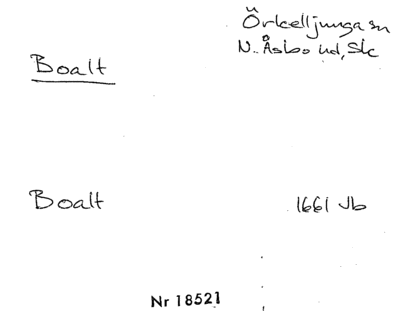 Örkelljunga sn
N. Åsbo hd, Sk
Boalt
Boalt 1661 Jb
Nr 18521